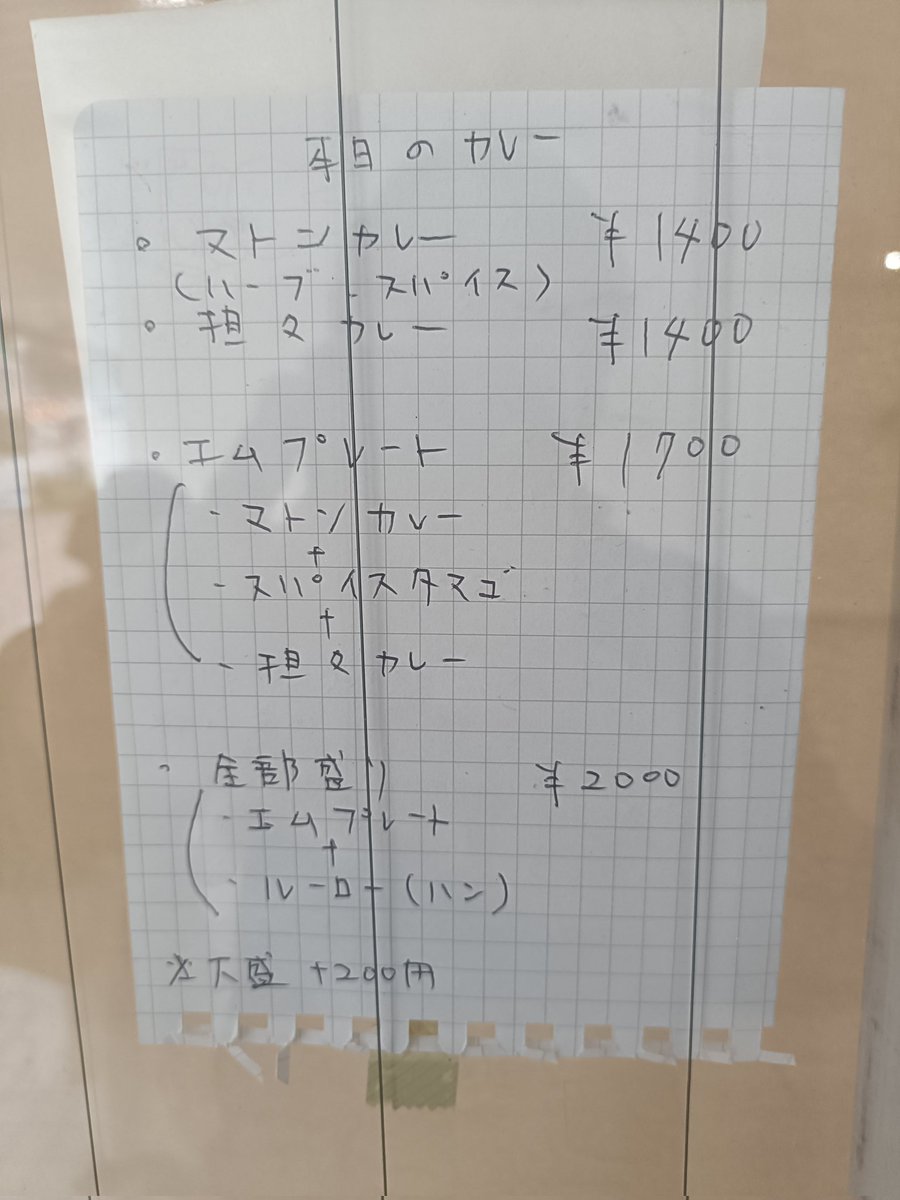 平日のカレー
。ストンカレー ¥1400
(ハーブ、スパイス)
。担々カレー ¥1400
・エムプレート ¥1700
- ストンカレー
+
- スパイスタマゴ
+
- 担々カレー
・全部盛り ¥2000
・エムプレート
+
・ルーロー(ハン)
※大盛 +200円